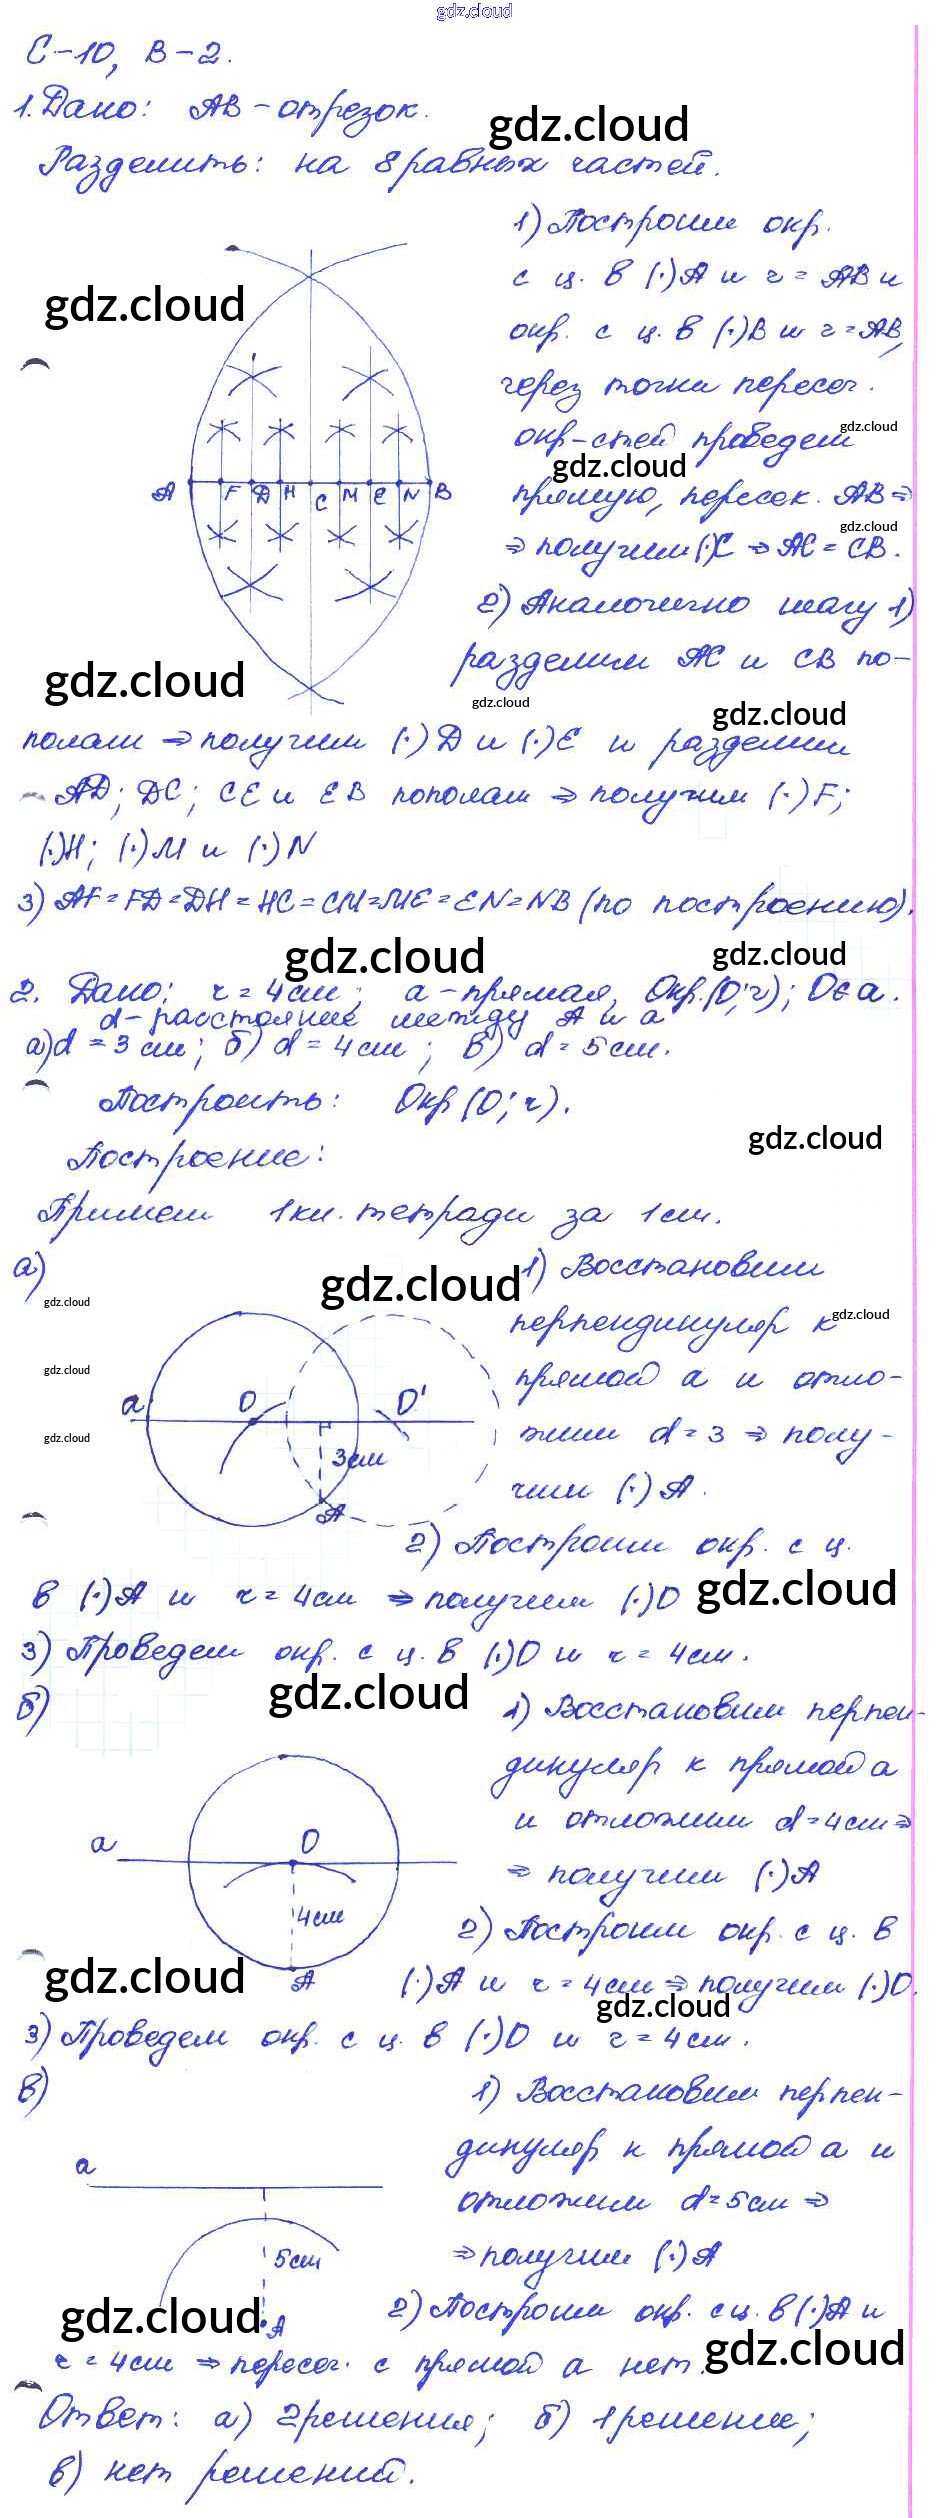 gdz.cloud
С-10, В-2.
1. Дано: AB - отрезок.
gdz.cloud
Разделить: на 8 равных частей.
1) Построим окр.
с ц. в (·)A и r = AB и
gdz.cloud
окр. с ц. в (·)B и r = AB,
через точки пересеч.
окр-стей проведем
gdz.cloud
gdz.cloud
прямую, пересек. AB ⇒
gdz.cloud
⇒ получим (·)C ⇒ AC = CB.
A F D H C M E N B
2) Аналогично шагу 1)
разделим AC и CB по-
gdz.cloud
gdz.cloud
gdz.cloud
полам ⇒ получим (·) D и (·) E и разделим
AD; DC; CE и EB пополам ⇒ получим (·) F;
(·)H; (·) M и (·) N
3) AF = FD = DH = HC = CM = ME = EN = NB (по построению).
gdz.cloud
gdz.cloud
2. Дано: r = 4 см; a - прямая, Окр.(O; r); O ∈ a.
d - расстояние между A и a
а) d = 3 см; б) d = 4 см; в) d = 5 см.
Построить: Окр (O; r).
gdz.cloud
Построение:
Примем 1 кл. тетради за 1 см.
а)
1) Восстановим
gdz.cloud
gdz.cloud
gdz.cloud
перпендикуляр к
gdz.cloud
прямой a и отло-
a O O'
жим d = 3 ⇒ полу-
gdz.cloud
3 см
чим (·) A.
A
2) Построим окр. с ц.
в (·) A и r = 4 см ⇒ получим (·) O
gdz.cloud
3) Проведем окр. с ц. в (·) O и r = 4 см.
gdz.cloud
б)
1) Восстановим перпен-
дикуляр к прямой a
и отложим d = 4 см ⇒
a O
⇒ получим (·) A
4 см
2) Построим окр. с ц. в
A
(·) A и r = 4 см ⇒ получим (·) O.
gdz.cloud
gdz.cloud
3) Проведем окр. с ц. в (·) O и r = 4 см.
в)
1) Восстановим перпен-
дикуляр к прямой a и
a
отложим d = 5 см ⇒
5 см
⇒ получим (·) A
A
2) Построим окр. с ц. в (·) A и
gdz.cloud
gdz.cloud
r = 4 см ⇒ пересеч. с прямой a нет.
Ответ: а) 2 решения; б) 1 решение;
в) нет решений.